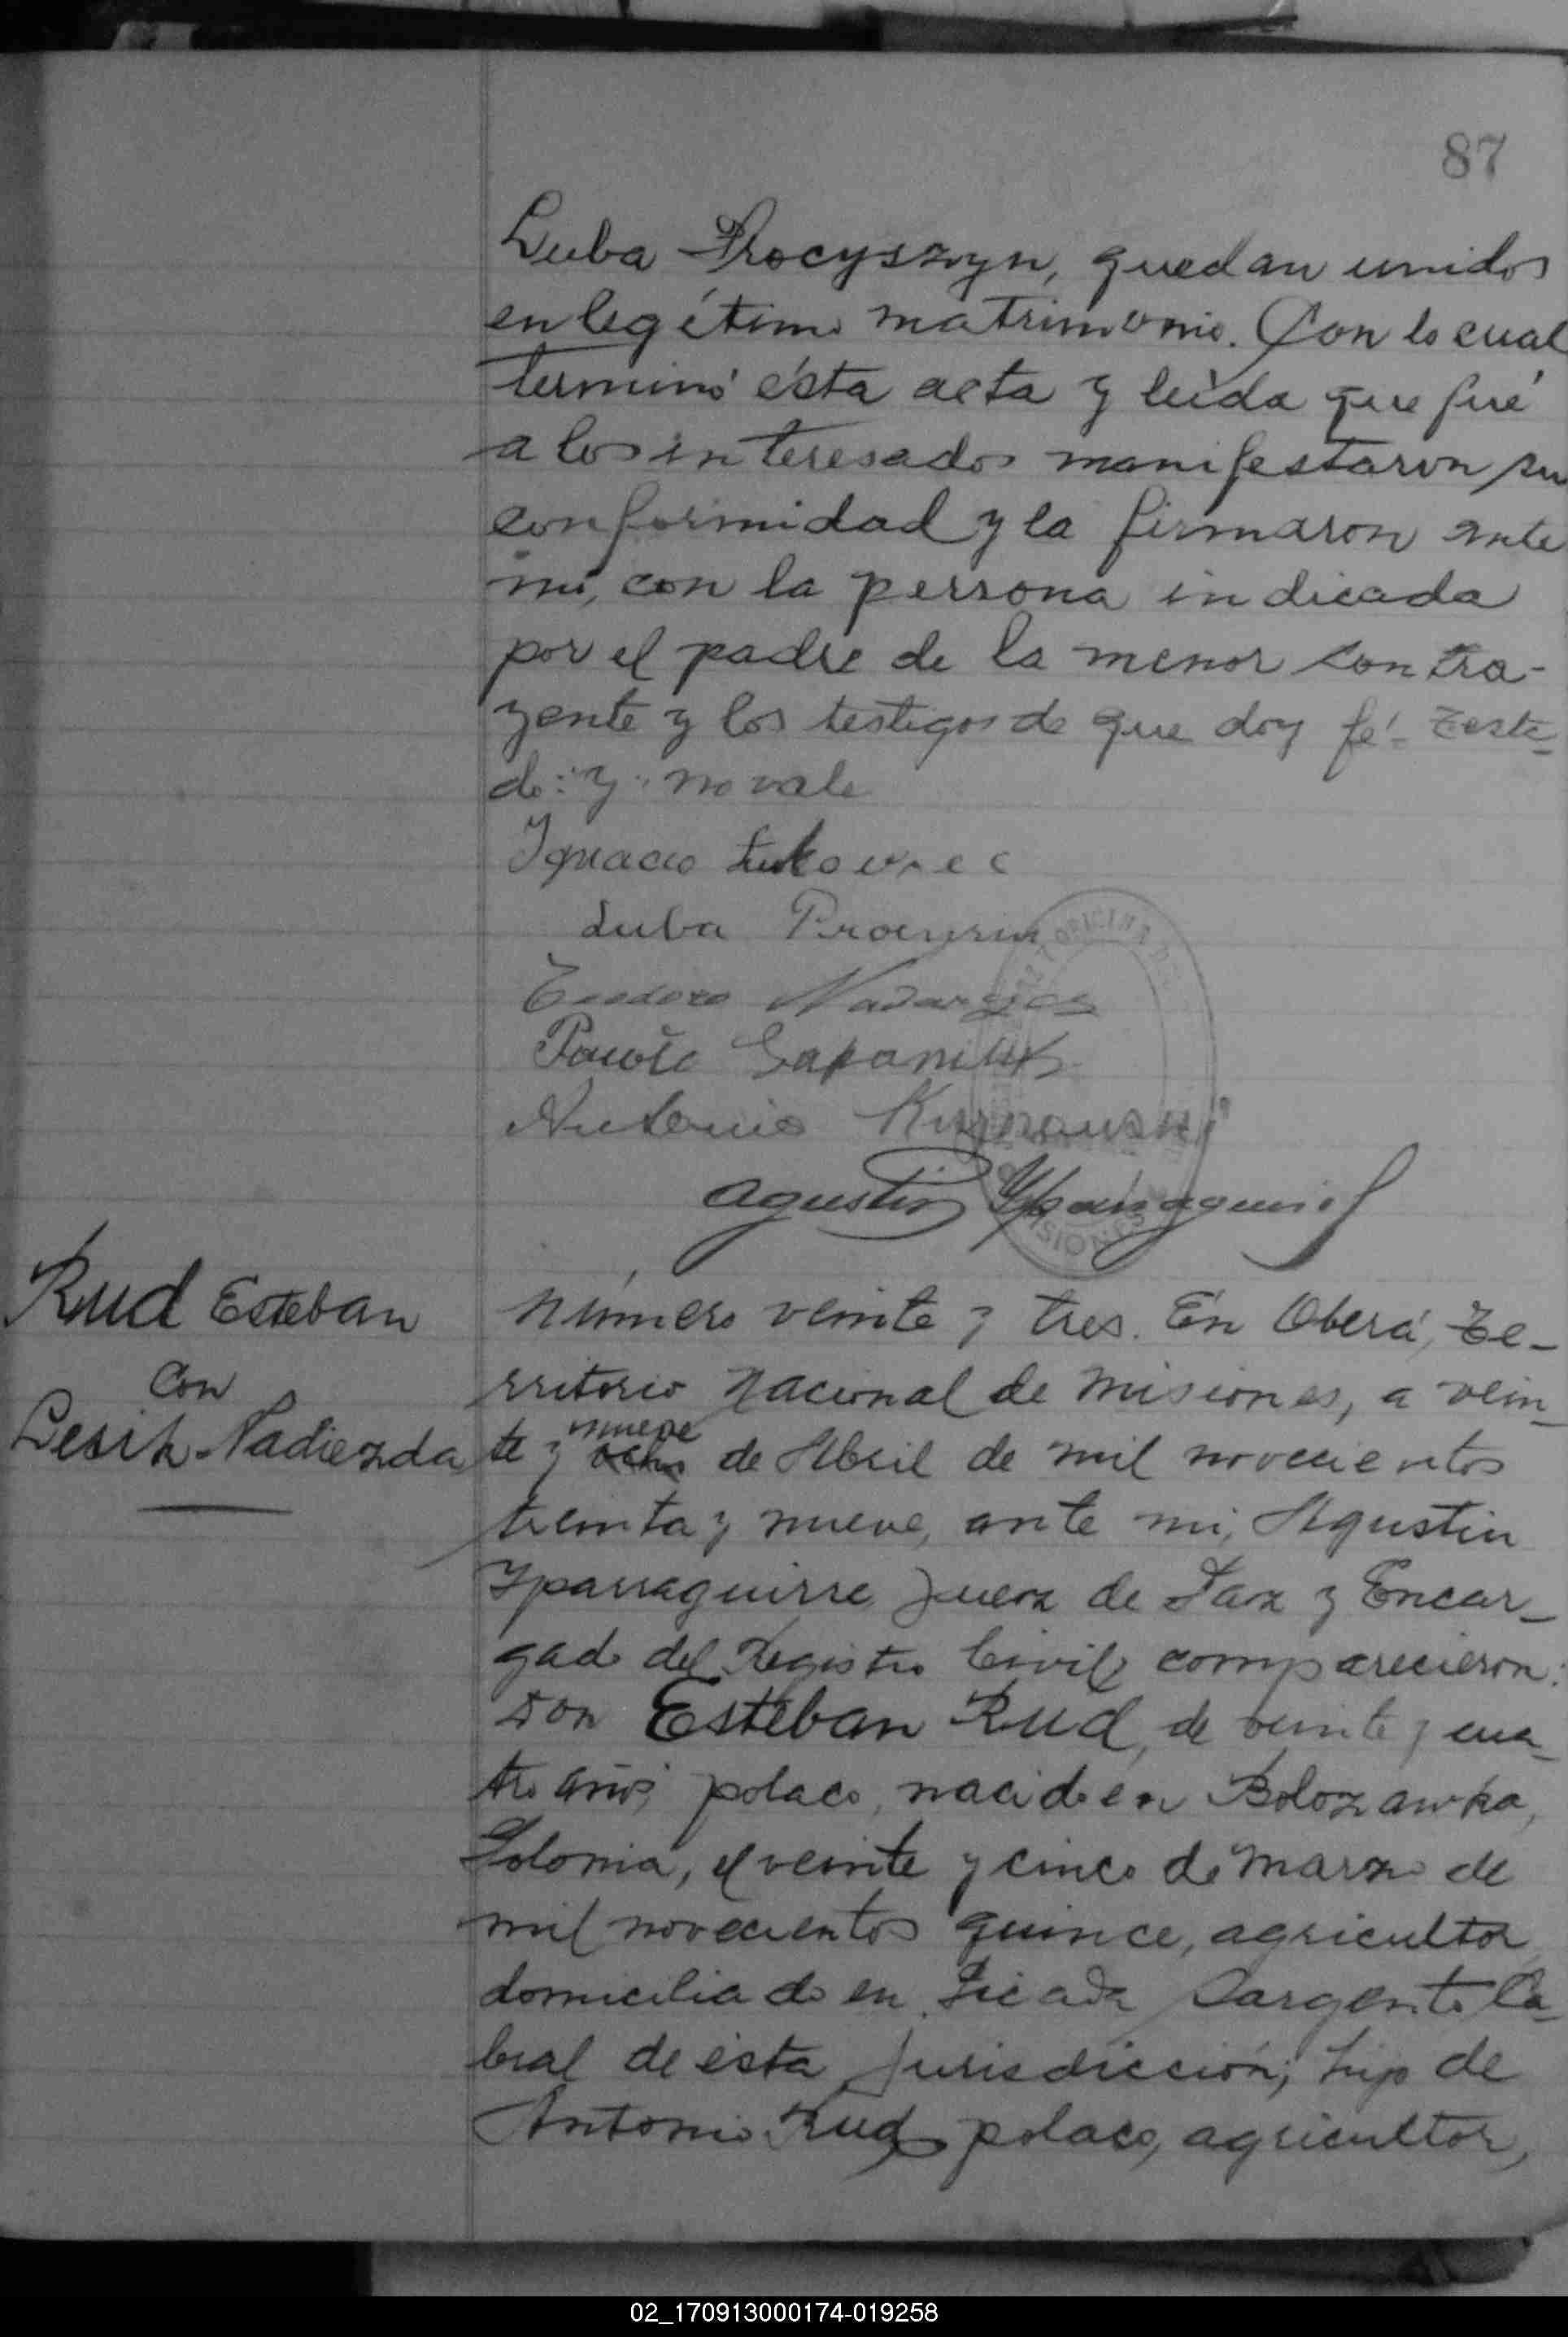 87
Luba Procyszyn, quedan unidos
en legítimo matrimonio. Con lo cual
terminó ésta acta y leida que fué
a los interesados manifestaron su
conformidad y la firmaron ante
mi, con la persona indicada
por el padre de la menor contra-
yente y los testigos de que doy fé- Testa-
do: "y" no vale
Ignacio
Luba
Teodoro
Antonio
Agustin Yparraguirre
OFICINA
MISIONES
Rud Esteban
con
Lesik Nadiezda
Número veinte y tres. En Oberá, Te-
rritorio Nacional de Misiones, a vein-
nueve
te y ocho de Abril de mil novecientos
treinta y nueve, ante mi, Agustin
Yparraguirre Juez de Paz y Encar-
gado del Registro Civil, comparecieron:
Don Esteban Rud, de veinte y cua-
tro años, polaco, nacido en Bolozawka,
Polonia, el veinte y cinco de Marzo de
mil novecientos quince, agricultor
domiciliado en Picada Sargento Ca-
bral de ésta jurisdicción; hijo de
Antonio Rud, polaco, agricultor,
02_170913000174-019258